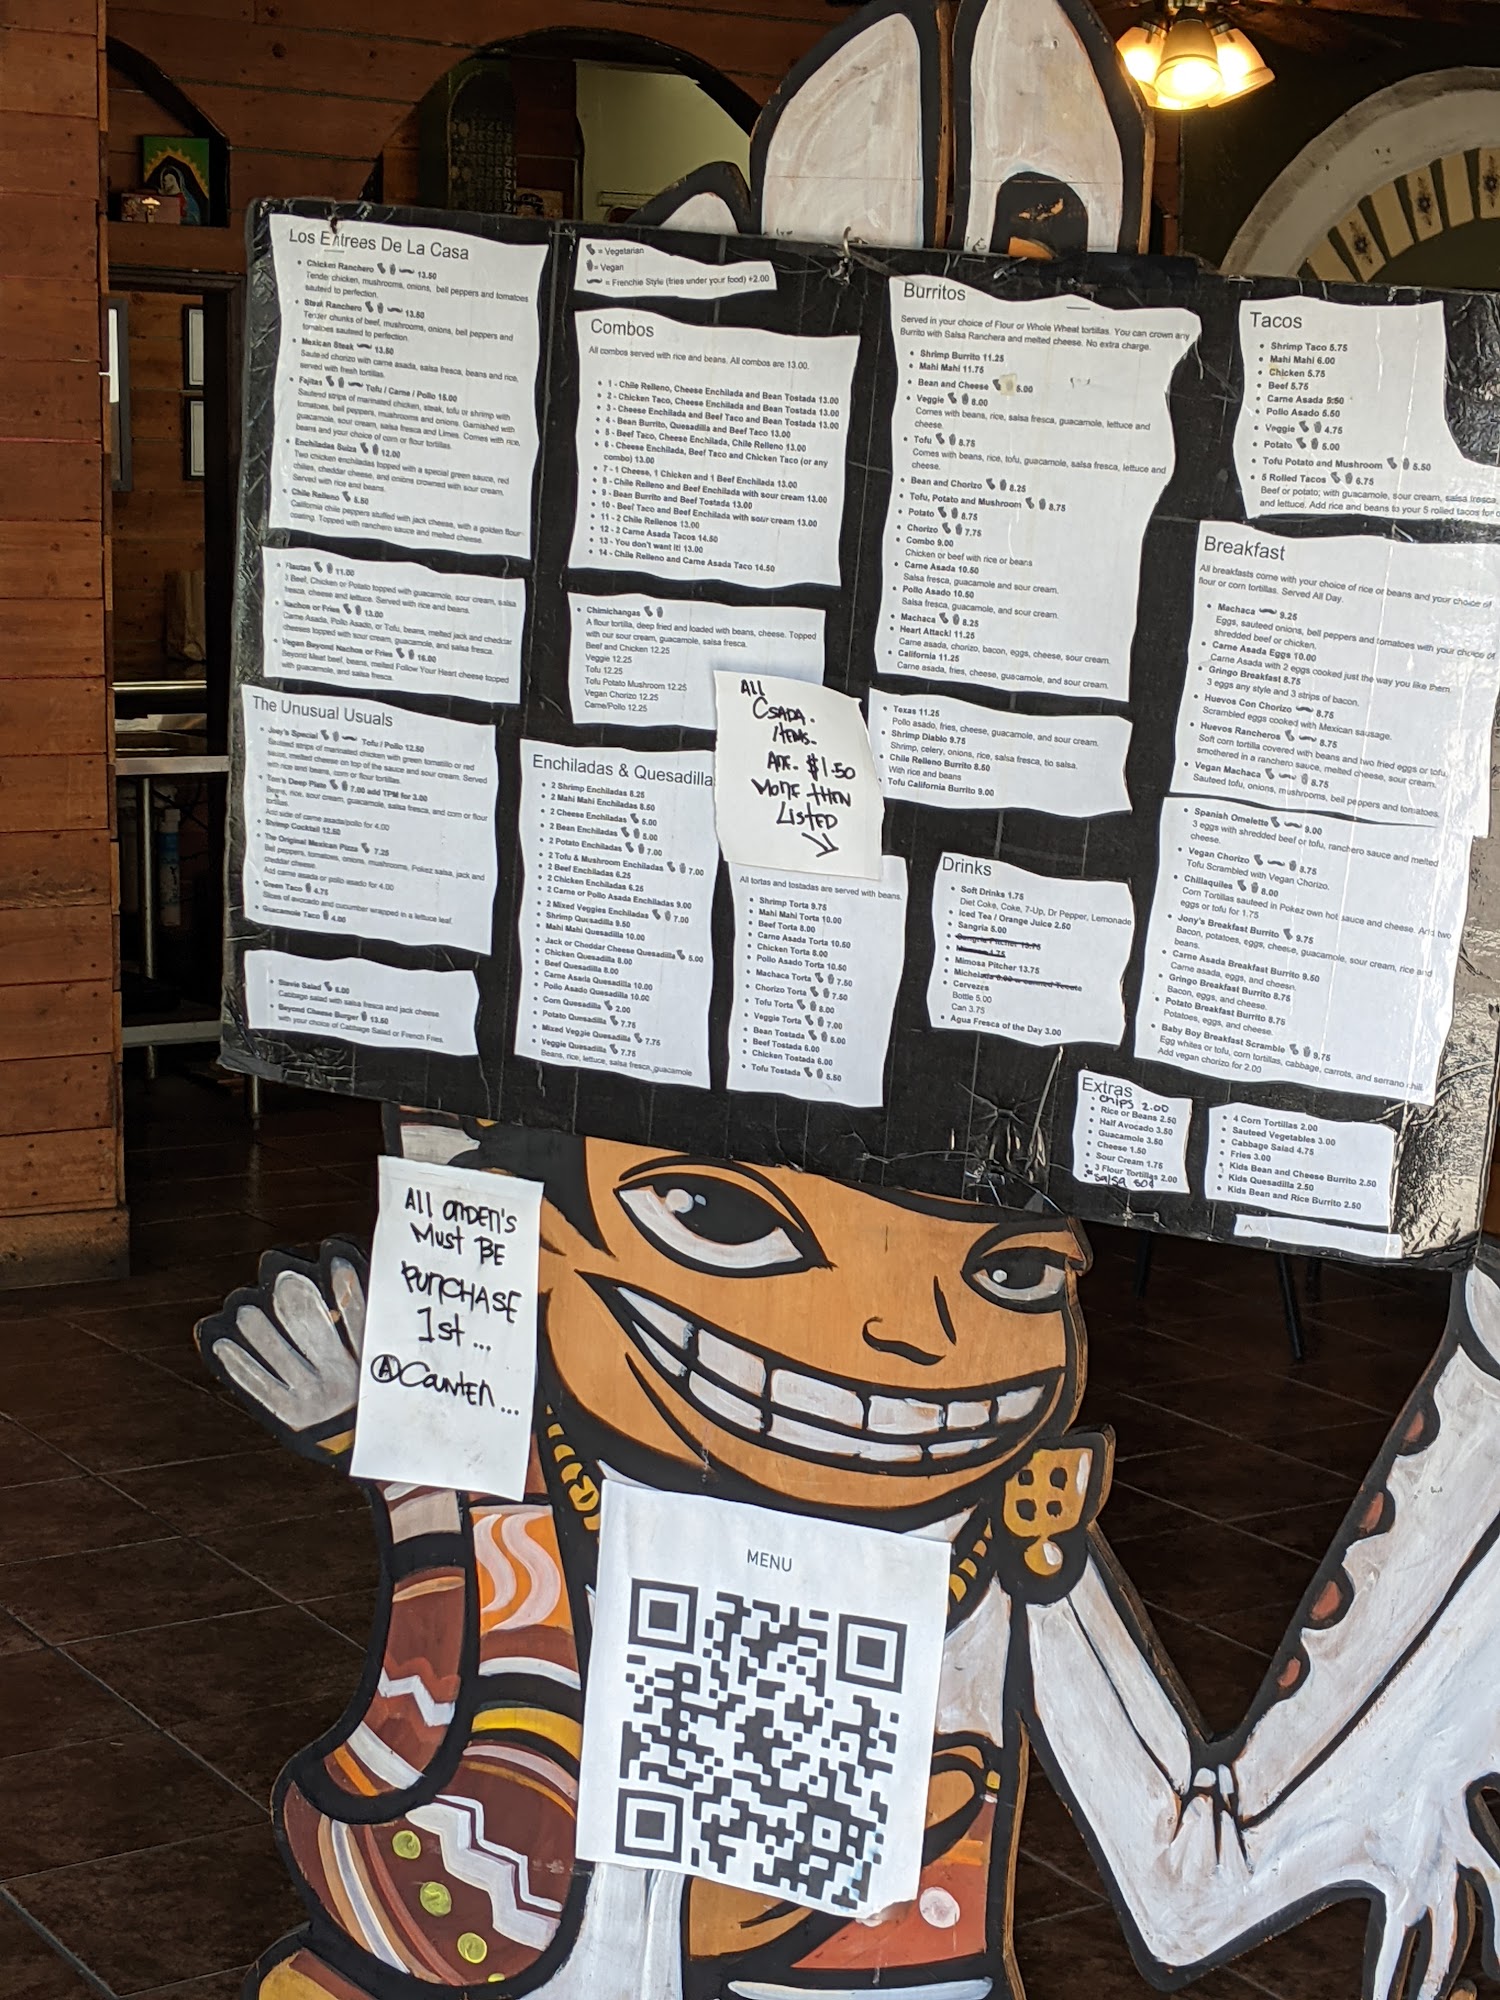 Los Entrees De La Casa
• Chicken Ranchero 13.50
Tender chicken, mushrooms, onions, bell peppers and tomatoes
sauteed to perfection.
• Steak Ranchero 13.50
Tender chunks of beef, mushrooms, onions, bell peppers and
tomatoes sauteed to perfection.
• Mexican Steak 13.50
Sauteed chorizo with carne asada, salsa fresca, beans and rice,
served with fresh tortillas.
• Fajitas Tofu / Carne / Pollo 15.00
Sauteed strips of marinated chicken, steak, tofu or shrimp with
tomatoes, bell peppers, mushrooms and onions. Garnished with
guacamole, sour cream, salsa fresca and Limes. Comes with rice,
beans and your choice of corn or flour tortillas.
• Enchiladas Suiza 12.00
Two chicken enchiladas topped with a special green sauce, red
chilies, cheddar cheese, and onions crowned with sour cream.
Served with rice and beans.
• Chile Relleno 5.50
California chile peppers stuffed with jack cheese, with a golden flour
coating. Topped with ranchero sauce and melted cheese.
• Flautas 11.00
3 Beef, Chicken or Potato topped with guacamole, sour cream, salsa
fresca, cheese and lettuce. Served with rice and beans.
• Nachos or Fries 13.00
Carne Asada, Pollo Asado, or Tofu, beans, melted jack and cheddar
cheeses topped with sour cream, guacamole, and salsa fresca.
• Vegan Beyond Nachos or Fries 16.00
Beyond Meat beef, beans, melted Follow Your Heart cheese topped
with guacamole, and salsa fresca.
The Unusual Usuals
• Joey's Special Tofu / Pollo 12.50
Sauteed strips of marinated chicken with green tomatillo or red
sauce, melted cheese on top of the sauce and sour cream. Served
with rice and beans, corn or flour tortillas.
• Tom's Deep Plate 7.00 add TPM for 3.00
Beans, rice, sour cream, guacamole, salsa fresca, and corn or flour
tortillas.
Add side of carne asada/pollo for 4.00
• Shrimp Cocktail 12.50
• The Original Mexican Pizza 7.25
Bell peppers, tomatoes, onions, mushrooms, Pokez salsa, jack and
cheddar cheese.
Add carne asada or pollo asado for 4.00
• Green Taco 4.75
Slices of avocado and cucumber wrapped in a lettuce leaf.
• Guacamole Taco 4.00
• Stevie Salad 6.00
Cabbage salad with salsa fresca and jack cheese
• Beyond Cheese Burger 13.50
with your choice of Cabbage Salad or French Fries.
= Vegetarian
= Vegan
= Frenchie Style (fries under your food) +2.00
Combos
All combos served with rice and beans. All combos are 13.00.
• 1 - Chile Relleno, Cheese Enchilada and Bean Tostada 13.00
• 2 - Chicken Taco, Cheese Enchilada and Bean Tostada 13.00
• 3 - Cheese Enchilada and Beef Taco and Bean Tostada 13.00
• 4 - Bean Burrito, Quesadilla and Beef Taco 13.00
• 5 - Beef Taco, Cheese Enchilada, Chile Relleno 13.00
• 6 - Cheese Enchilada, Beef Taco and Chicken Taco (or any
combo) 13.00
• 7 - 1 Cheese, 1 Chicken and 1 Beef Enchilada 13.00
• 8 - Chile Relleno and Beef Enchilada with sour cream 13.00
• 9 - Bean Burrito and Beef Tostada 13.00
• 10 - Beef Taco and Beef Enchilada with sour cream 13.00
• 11 - 2 Chile Rellenos 13.00
• 12 - 2 Carne Asada Tacos 14.50
• 13 - You don't want it! 13.00
• 14 - Chile Relleno and Carne Asada Taco 14.50
• Chimichangas
A flour tortilla, deep fried and loaded with beans, cheese. Topped
with our sour cream, guacamole, salsa fresca.
Beef and Chicken 12.25
Veggie 12.25
Tofu 12.25
Tofu Potato Mushroom 12.25
Vegan Chorizo 12.25
Carne/Pollo 12.25
Enchiladas & Quesadilla
• 2 Shrimp Enchiladas 8.25
• 2 Mahi Mahi Enchiladas 8.50
• 2 Cheese Enchiladas 5.00
• 2 Bean Enchiladas 5.00
• 2 Potato Enchiladas 7.00
• 2 Tofu & Mushroom Enchiladas 7.00
• 2 Beef Enchiladas 6.25
• 2 Chicken Enchiladas 6.25
• 2 Carne or Pollo Asada Enchiladas 9.00
• 2 Mixed Veggies Enchiladas 7.00
• Shrimp Quesadilla 9.50
• Mahi Mahi Quesadilla 10.00
• Jack or Cheddar Cheese Quesadilla 5.00
• Chicken Quesadilla 8.00
• Beef Quesadilla 8.00
• Carne Asada Quesadilla 10.00
• Pollo Asado Quesadilla 10.00
• Corn Quesadilla 2.00
• Potato Quesadilla 7.75
• Mixed Veggie Quesadilla 7.75
• Veggie Quesadilla 7.75
Beans, rice, lettuce, salsa fresca, guacamole
ALL
CSADA.
ITEMS.
ARE. $1.50
MORE THEN
LISTED
All tortas and tostadas are served with beans,
• Shrimp Torta 9.75
• Mahi Mahi Torta 10.00
• Beef Torta 8.00
• Carne Asada Torta 10.50
• Chicken Torta 8.00
• Pollo Asado Torta 10.50
• Machaca Torta 7.50
• Chorizo Torta 7.50
• Tofu Torta 8.00
• Veggie Torta 7.00
• Bean Tostada 5.00
• Beef Tostada 6.00
• Chicken Tostada 6.00
• Tofu Tostada 5.50
Burritos
Served in your choice of Flour or Whole Wheat tortillas. You can crown any
Burrito with Salsa Ranchera and melted cheese. No extra charge.
• Shrimp Burrito 11.25
• Mahi Mahi 11.75
• Bean and Cheese 6.00
• Veggie 8.00
Comes with beans, rice, salsa fresca, guacamole, lettuce and
cheese.
• Tofu 8.75
Comes with beans, rice, tofu, guacamole, salsa fresca, lettuce and
cheese.
• Bean and Chorizo 8.25
• Tofu, Potato and Mushroom 8.75
• Potato 8.75
• Chorizo 7.75
• Combo 9.00
Chicken or beef with rice or beans
• Carne Asada 10.50
Salsa fresca, guacamole and sour cream.
• Pollo Asado 10.50
Salsa fresca, guacamole, and sour cream.
• Machaca 8.25
• Heart Attack! 11.25
Carne asada, chorizo, bacon, eggs, cheese, sour cream.
• California 11.25
Carne asada, fries, cheese, guacamole, and sour cream.
• Texas 11.25
Pollo asado, fries, cheese, guacamole, and sour cream.
• Shrimp Diablo 9.75
Shrimp, celery, onions, rice, salsa fresca, tio salsa.
• Chile Relleno Burrito 8.50
With rice and beans
• Tofu California Burrito 9.00
Drinks
• Soft Drinks 1.75
Diet Coke, Coke, 7-Up, Dr Pepper, Lemonade
• Iced Tea / Orange Juice 2.50
• Sangria 5.00
• Sangria Pitcher 13.75
• Mimosa Pitcher 13.75
• Michelada
• Cervezes
Bottle 5.00
Can 3.75
• Agua Fresca of the Day 3.00
Tacos
• Shrimp Taco 5.75
• Mahi Mahi 6.00
• Chicken 5.75
• Beef 5.75
• Carne Asada 5.50
• Pollo Asado 5.50
• Veggie 4.75
• Potato 5.00
• Tofu Potato and Mushroom 5.50
• 5 Rolled Tacos 6.75
Beef or potato; with guacamole, sour cream, salsa fresca
and lettuce. Add rice and beans to your 5 rolled tacos for
Breakfast
All breakfasts come with your choice of rice or beans and your choice of
flour or corn tortillas. Served All Day.
• Machaca 9.25
Eggs, sauteed onions, bell peppers and tomatoes with your choice of
shredded beef or chicken.
• Carne Asada Eggs 10.00
Carne Asada with 2 eggs cooked just the way you like them.
• Gringo Breakfast 8.75
3 eggs any style and 3 strips of bacon.
• Huevos Con Chorizo 8.75
Scrambled eggs cooked with Mexican sausage.
• Huevos Rancheros 8.75
Soft corn tortilla covered with beans and two fried eggs or tofu,
smothered in a ranchero sauce, melted cheese, sour cream.
• Vegan Machaca 8.75
Sauteed tofu, onions, mushrooms, bell peppers and tomatoes.
• Spanish Omelette 9.00
3 eggs with shredded beef or tofu, ranchero sauce and melted
cheese.
• Vegan Chorizo 8.75
Tofu Scrambled with Vegan Chorizo,
• Chillaquiles 8.00
Corn Tortillas sauteed in Pokez own hot sauce and cheese. Add two
eggs or tofu for 1.75
• Jony's Breakfast Burrito 9.75
Bacon, potatoes, eggs, cheese, guacamole, sour cream, rice and
beans.
• Carne Asada Breakfast Burrito 9.50
Carne asada, eggs, and cheese.
• Gringo Breakfast Burrito 8.75
Bacon, eggs, and cheese.
• Potato Breakfast Burrito 8.75
Potatoes, eggs, and cheese.
• Baby Boy Breakfast Scramble 9.75
Egg whites or tofu, corn tortillas, cabbage, carrots, and serrano chili.
Add vegan chorizo for 2.00
Extras
• Chips 2.00
• Rice or Beans 2.50
• Half Avocado 3.50
• Guacamole 3.50
• Cheese 1.50
• Sour Cream 1.75
• 3 Flour Tortillas 2.00
• Salsa 50¢
• 4 Corn Tortillas 2.00
• Sauteed Vegetables 3.00
• Cabbage Salad 4.75
• Fries 3.00
• Kids Bean and Cheese Burrito 2.50
• Kids Quesadilla 2.50
• Kids Bean and Rice Burrito 2.50
All ORDER'S
Must BE
PURCHASE
1st...
@ Counter...
MENU